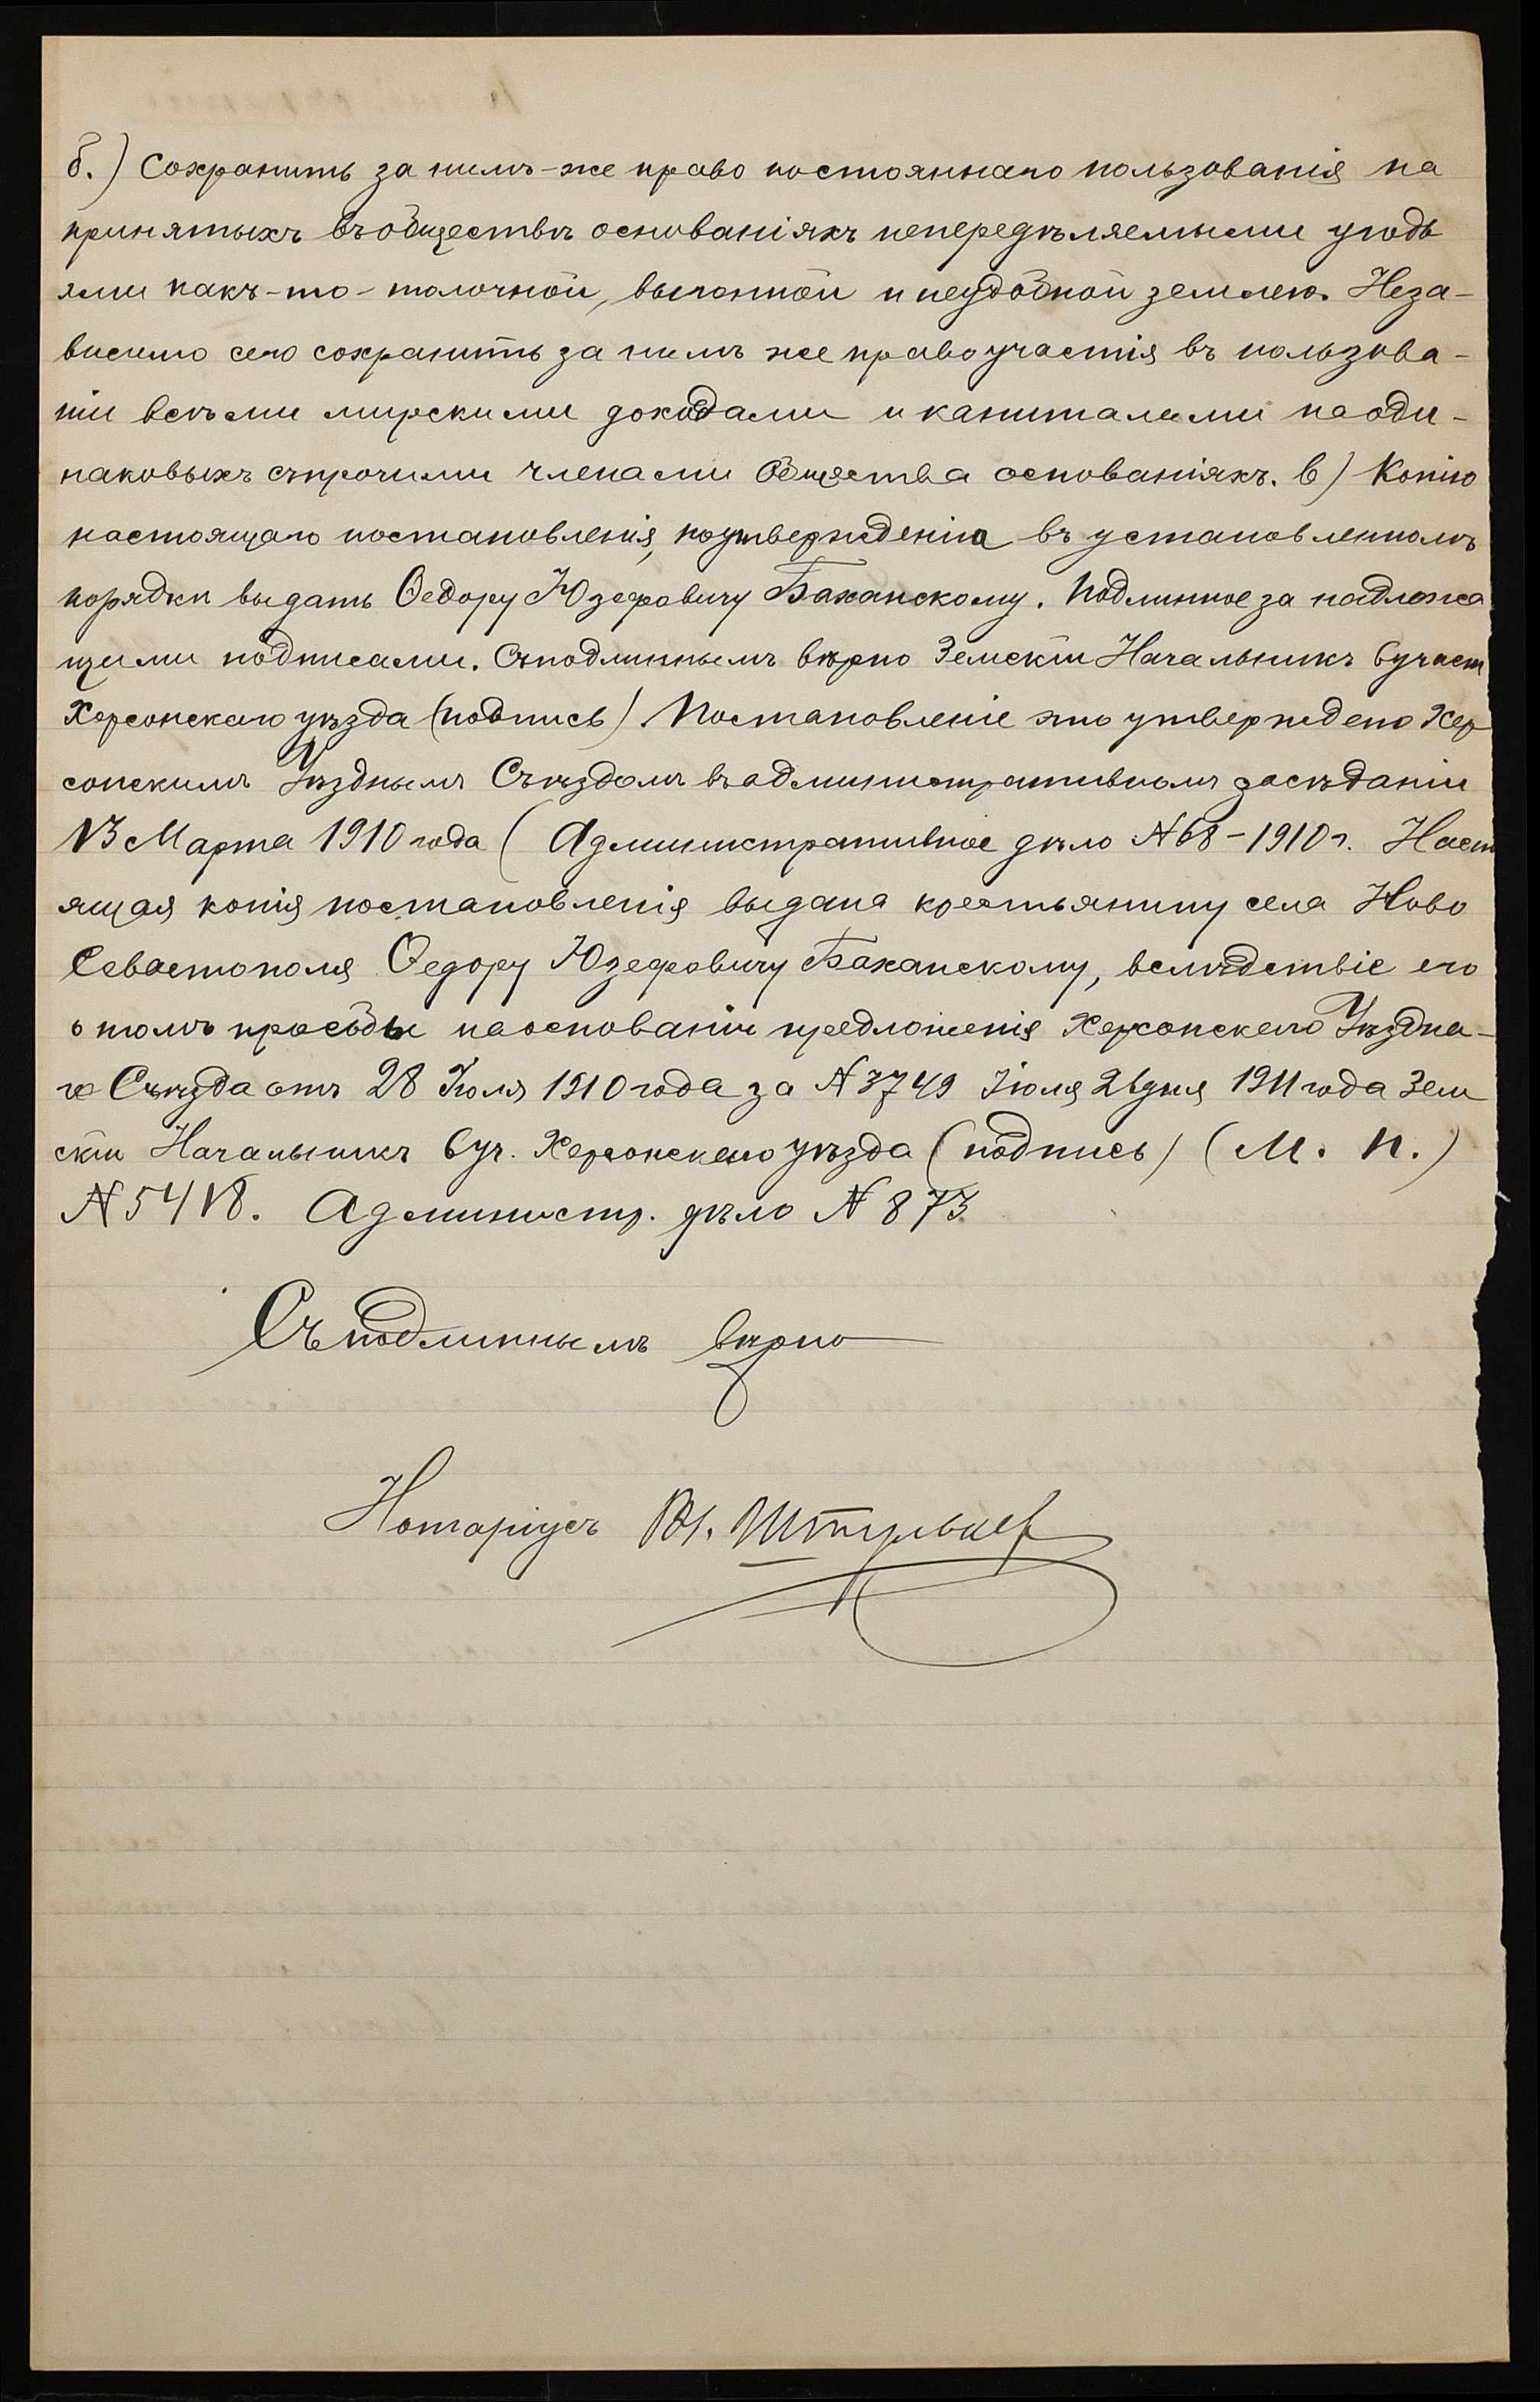 б.) Сохранить за нимъ-же право постояннаго пользованія на
принятыхъ въ обществѣ основаніяхъ непередѣляемыми угодь
ями какъ-то-толочной, выгонной и неудобной землею. Неза-
висимо сего сохранить за нимъ же право участія въ пользова-
ніи всѣми мирскими доходами и капиталами на оди-
наковыхъ съ прочими членами Общества основаніяхъ. в) Копію
настоящаго постановленія, по утвержденіи въ установленномъ
порядки выдать Ѳедору Юзефовичу Баханскому. Подлинное за надлежа
щими подписами. Съ подлиннымъ вѣрно Земскій Начальникъ 6 участ
Херсонскаго уѣзда (подпись) Постановленіе это утверждено Хер
сонскимъ Уѣзднымъ Съѣздомъ въ административномъ засѣданіи
13 Марта 1910 года ( Административное дѣло № 68-1910 г. Наст
ящая копія постановленія выдана крестьянину села Ново
Севастополя Ѳедору Юзефовичу Баханскому, вслѣдствіе его
о томъ просьбы на основаніи предложенія Херсонскаго Уѣздна-
го Съѣзда отъ 28 Іюля 1910 года за № 3749 Іюля 26 дня 1911 года Зем
скій Начальникъ 6 уч. Херсонскаго уѣзда (подпись) (М. П.)
№ 5418. Администр. дѣло № 873
Съ подлиннымъ вѣрно
Нотаріусъ